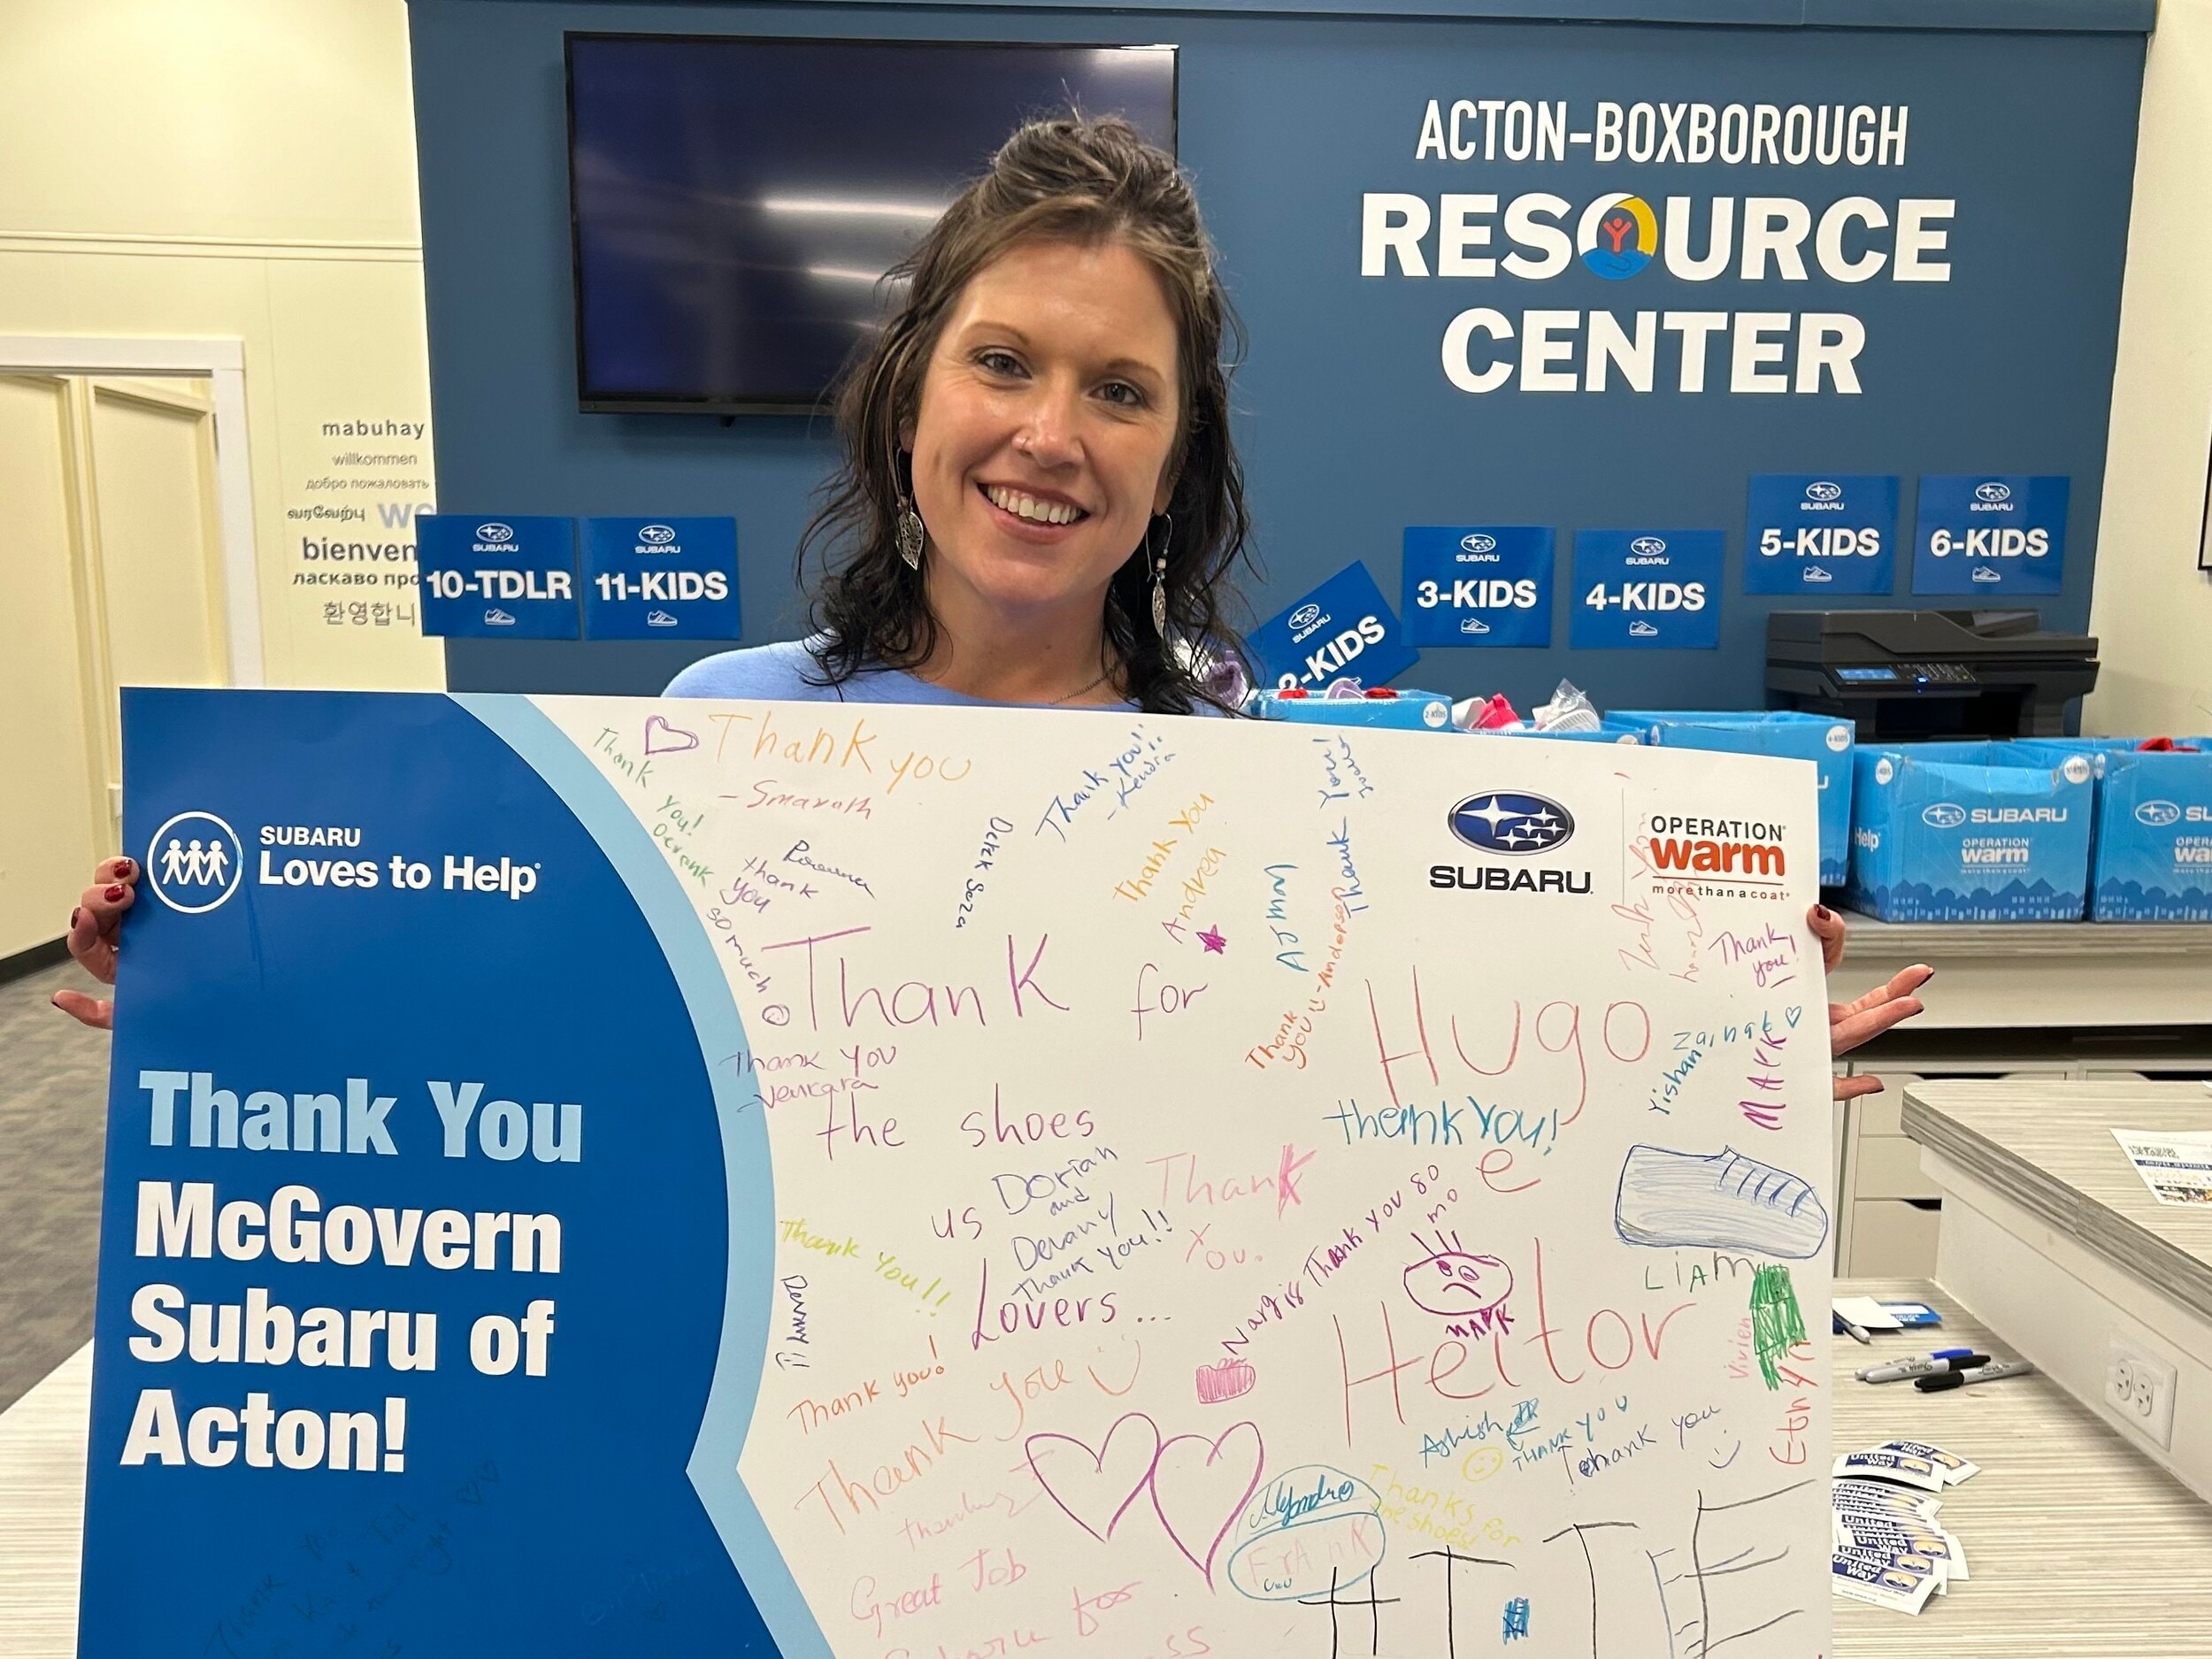 ACTON-BOXBOROUGH
RESOURCE
CENTER
mabuhay
willkommen
добро пожаловать
வரவேற்பு
bienven
ласкаво про
환영합니
SUBARU
10-TDLR
SUBARU
11-KIDS
SUBARU
2-KIDS
SUBARU
3-KIDS
SUBARU
4-KIDS
SUBARU
5-KIDS
SUBARU
6-KIDS
SUBARU
Loves to Help
Thank You
McGovern
Subaru of
Acton!
SUBARU
OPERATION
warm
more than a coat
SUBARU
OPERATION
warm
Help
Thank you
- Smaroth
Thank you!
thank
you
so much
Derek Seza
Thank you!!
- Kendra
Thank You
Andrea
AJ
Thank You!
Thank
you
- Anderson
Thank
you!
Thank for
the shoes
us
Lovers...
Thank you
Hugo
thank you!
e
Heitor
Zainab
Yishan
MARK
Dorian
and
Devany
Thank you!!
Thank
You.
Thank you!!
Danny
Nargis Thank you so
mo
MARK
LIAM
Vivien
Ethan
Thank you!
Thank you
Ashish
THANK YOU
Thank you
Thanks for
the shoes!
Alejandro
FrAnK
Great Job
Subaru for
Thank
United
Way